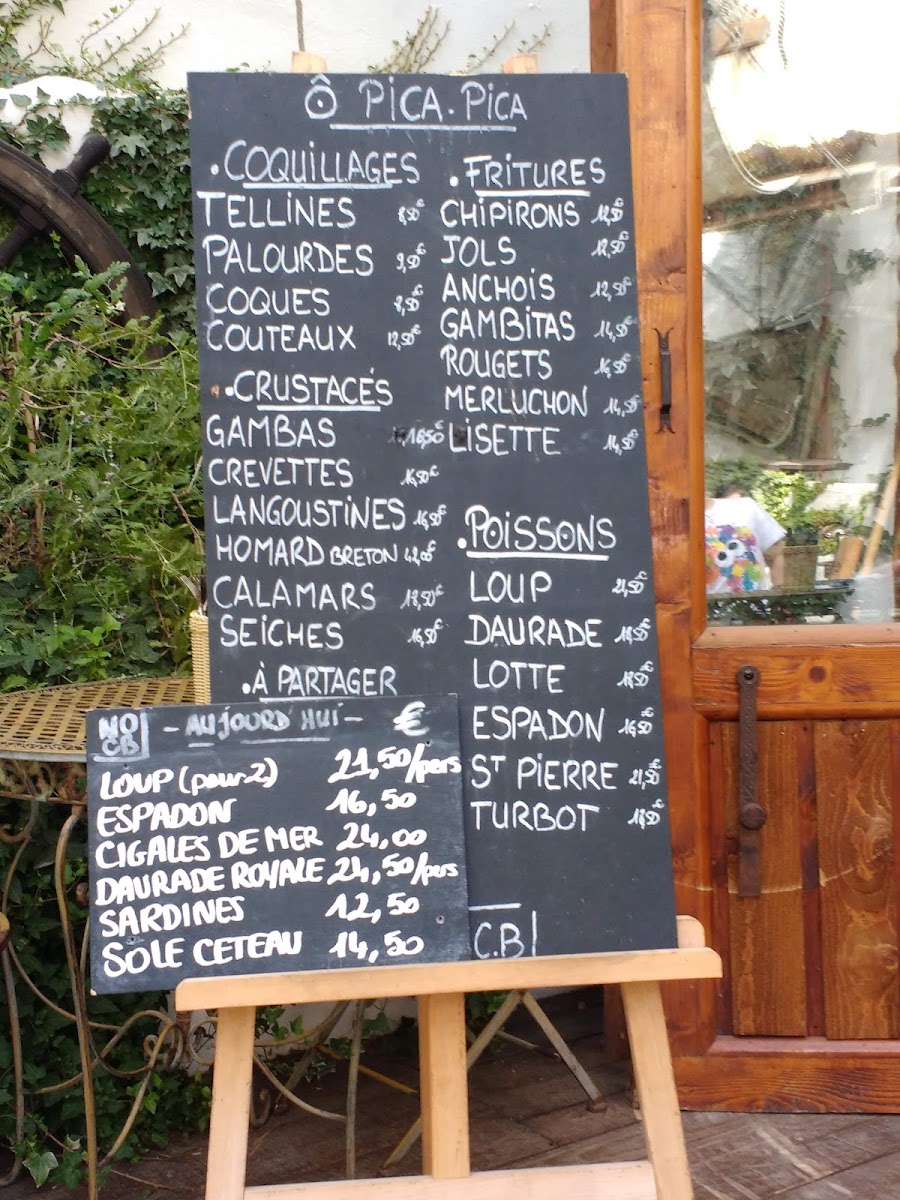 Ô PICA.PICA
.COQUILLAGES
TELLINES 8,50€
PALOURDES 9,50€
COQUES 9,50€
COUTEAUX 12,50€
.CRUSTACÉS
GAMBAS 16,50€
CREVETTES 16,50€
LANGOUSTINES 16,50€
HOMARD BRETON 42,00€
CALAMARS 18,50€
SEICHES 16,50€
.À PARTAGER
.FRITURES
CHIPIRONS 12,50€
JOLS 12,50€
ANCHOIS 12,50€
GAMBITAS 14,50€
ROUGETS 16,50€
MERLUCHON 14,50€
LISETTE 14,50€
.POISSONS
LOUP 21,50€
DAURADE 18,50€
LOTTE 18,50€
ESPADON 16,50€
ST PIERRE 21,50€
TURBOT 18,50€
C.B
NO CB - AUJOURD'HUI - €
LOUP (pour 2) 21,50/pers
ESPADON 16,50
CIGALES DE MER 24,00
DAURADE ROYALE 21,50/pers
SARDINES 12,50
SOLE CETEAU 14,50